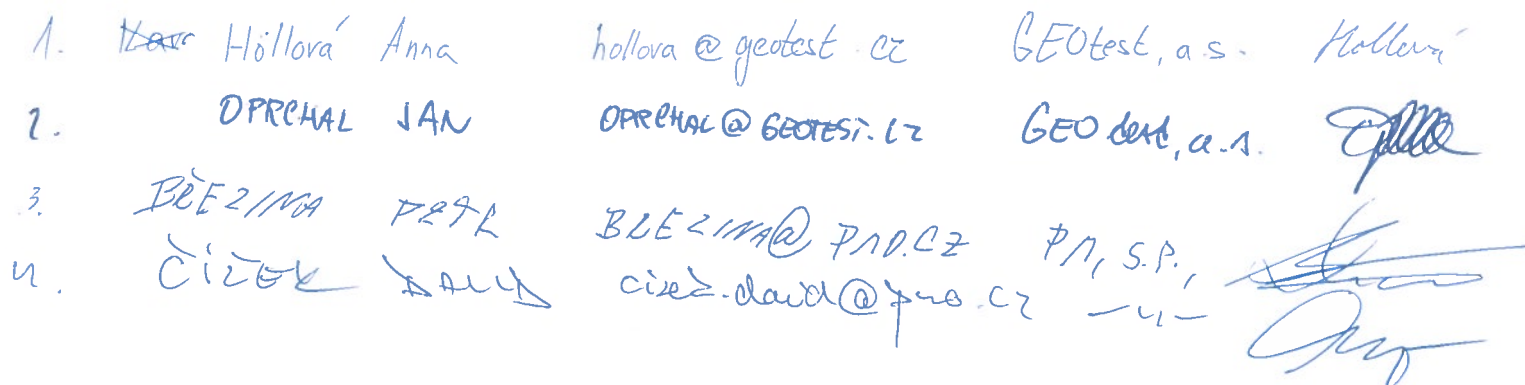 1. Höllová Anna hollova@geotest.cz GEOtest, a.s. Hollová
2. OPRCHAL JAN OPRCHAL@GEOTEST.CZ GEOtest, a.s.
3. BŘEZINA PETR BREZINA@PMO.CZ PM, S.P.,
4. ČÍŽEK DAVID cizek.david@pmo.cz —〃—